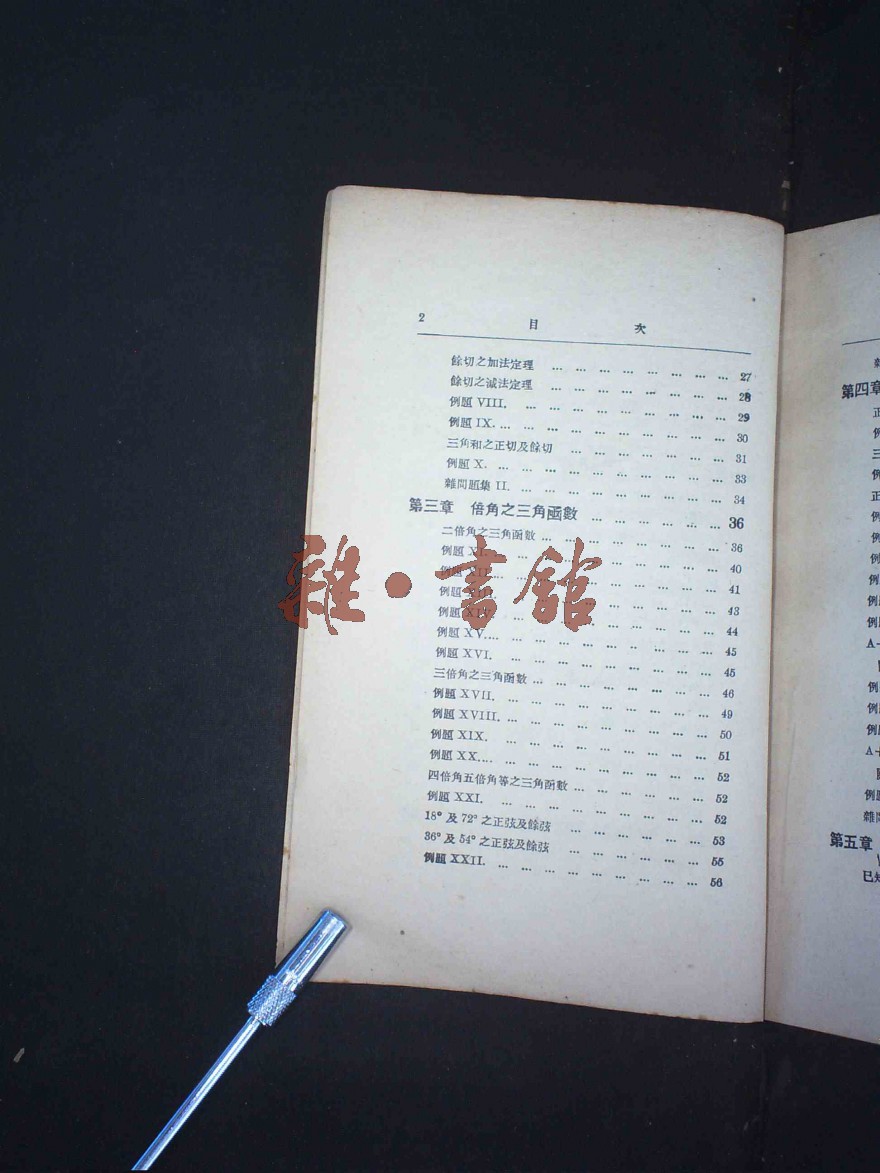 2 目 次
餘切之加法定理 … … … … … … … … … 27
餘切之減法定理 … … … … … … … … … 28
例題 VIII. … … … … … … … … … … 29
例題 IX. … … … … … … … … … … … 30
三角和之正切及餘切 … … … … … … … … 31
例題 X. … … … … … … … … … … … 33
雜問題集 II. … … … … … … … … … … 34
第三章 倍角之三角函數 … … … … … … … 36
二倍角之三角函數 … … … … … … … … 36
例題 XI. … … … … … … … … … … 40
例題 XII. … … … … … … … … … … 41
例題 XIII. … … … … … … … … … … 43
例題 XIV. … … … … … … … … … … 44
例題 XV. … … … … … … … … … … 45
例題 XVI. … … … … … … … … … … 45
三倍角之三角函數 … … … … … … … … 46
例題 XVII. … … … … … … … … … … 49
例題 XVIII. … … … … … … … … … … 50
例題 XIX. … … … … … … … … … … 51
例題 XX. … … … … … … … … … … 52
四倍角五倍角等之三角函數 … … … … … … 52
例題 XXI. … … … … … … … … … … 52
18° 及 72° 之正弦及餘弦 … … … … … … 53
36° 及 54° 之正弦及餘弦 … … … … … … 55
例題XXII. … … … … … … … … … … 56
雜·書館
第四章
正
例
三
例
正
例
例
例
例
例
例
A
例
例
例
A
例
雜問
第五章
已知